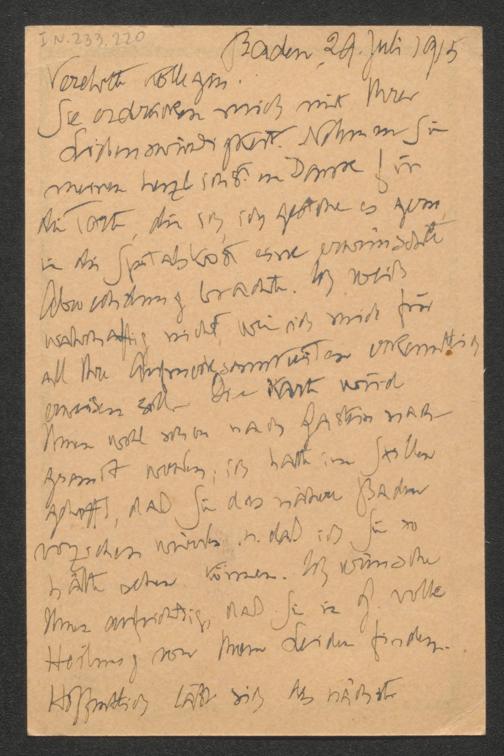 I.N. 233.220
Baden, 29. Juli 1915
Verehrte Kollegin.
Sie erdrücken mich mit Ihrer
Liebenswürdigkeit. Nehmen Sie
meinen herzlichsten Danke für
die Torte, die ich, ich gestehe es gern,
in die Spitalskost eine erwünschte
Abwechslung brachte. Ich weiß
wahrhaftig nicht, wie ich mich für
all Ihre Aufmerksamkeiten erkenntlich
erweisen soll. Die Karte wird
Ihnen wohl schon nach Gastein nach-
gesandt worden; ich hatte im Stillen
gehofft, daß Sie das nähere Baden
vorziehen würden u. daß ich Sie so
hätte sehen können. Ich wünsche
Ihnen aufrichtig, daß Sie in G. volle
Heilung von Ihrem Leiden finden.
Hoffentlich läßt sich das nächste